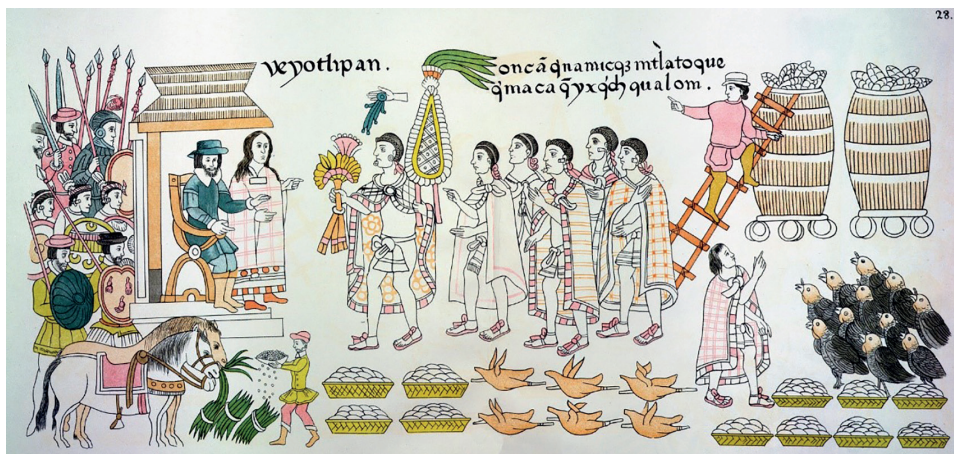 28.
veyotlipan.
oncā q̄namicqȝ intlàtoque
q̄maca q̄yxq̄ch qualoni.